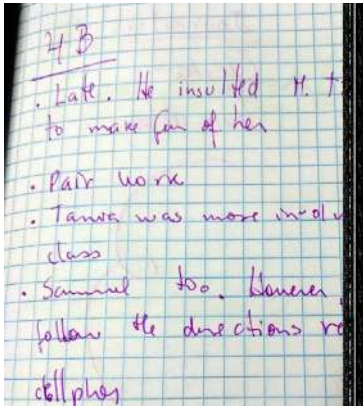 4B
. Late. He insulted M. t
to make fun of her
. Pair work
. Tania was more involv
class
. Samuel too. However,
follow the directions re
cellphon